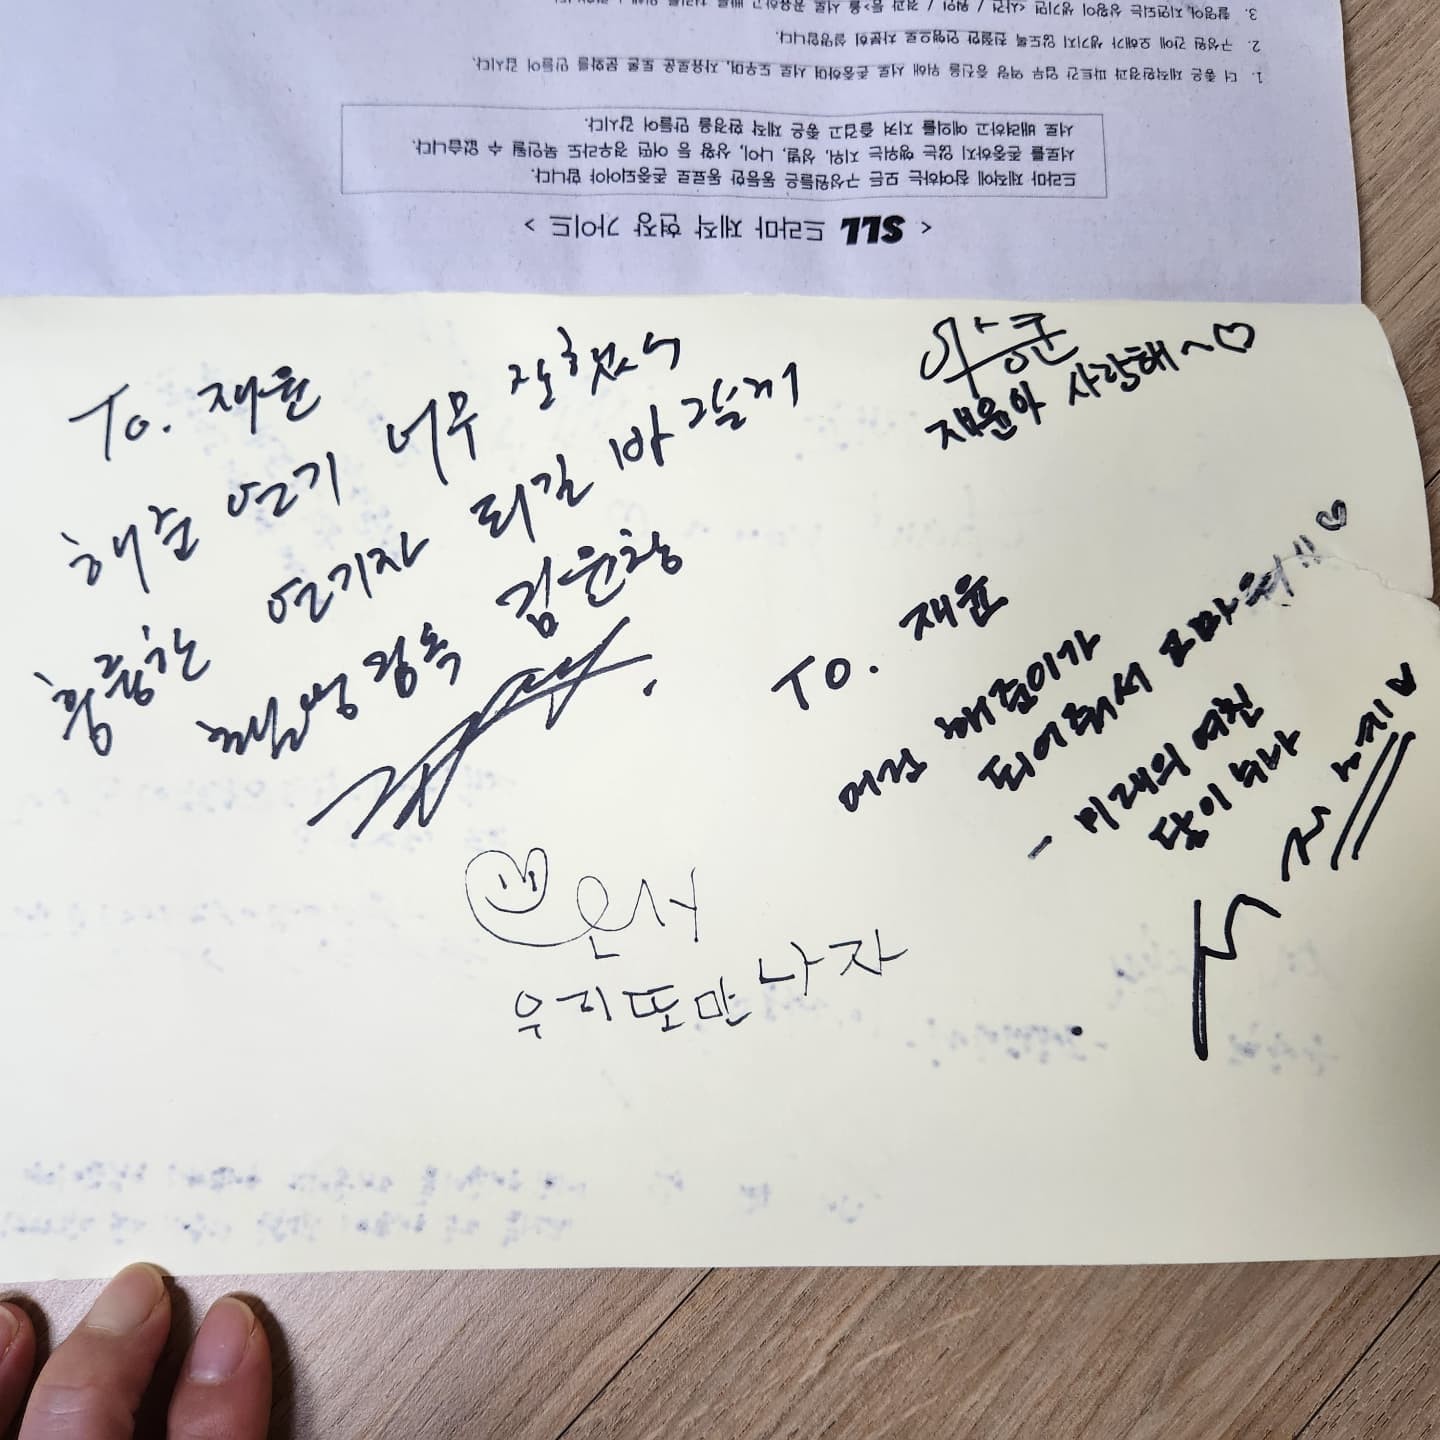 3. 촬영이 지연되는 상황이 생기면 <사건 / 원인 / 경과 등>을 서로 공유하고
2. 구성원 간에 오해가 생기지 않도록 친절한 언행으로 차분히 설명합니다.
1. 더 좋은 제작환경과 파트간 업무 역량 증진을 위해 서로 존중하며 서로 도우며, 자유로운 토론 문화를 만들어 갑시다.
서로 배려하고 예의를 지켜 즐겁고 좋은 제작 환경을 만들어 갑시다.
서로를 존중하지 않는 행위는 지위, 성별, 나이, 상황 등 어떤 경우라도 묵인될 수 없습니다.
드라마 제작에 참여하는 모든 구성원들은 동등한 동료로 존중되어야 합니다.
< SLL 드라마 제작 현장 가이드 >
To. 재윤
해준 연기 너무 잘했어
훌륭한 연기자 되길 바랄께
김윤창
재윤아 사랑해~♡
To. 재윤
어린 해준이가
되어줘서 고마워!! ♡
- 미래의 여친
은서
우리 또 만나자